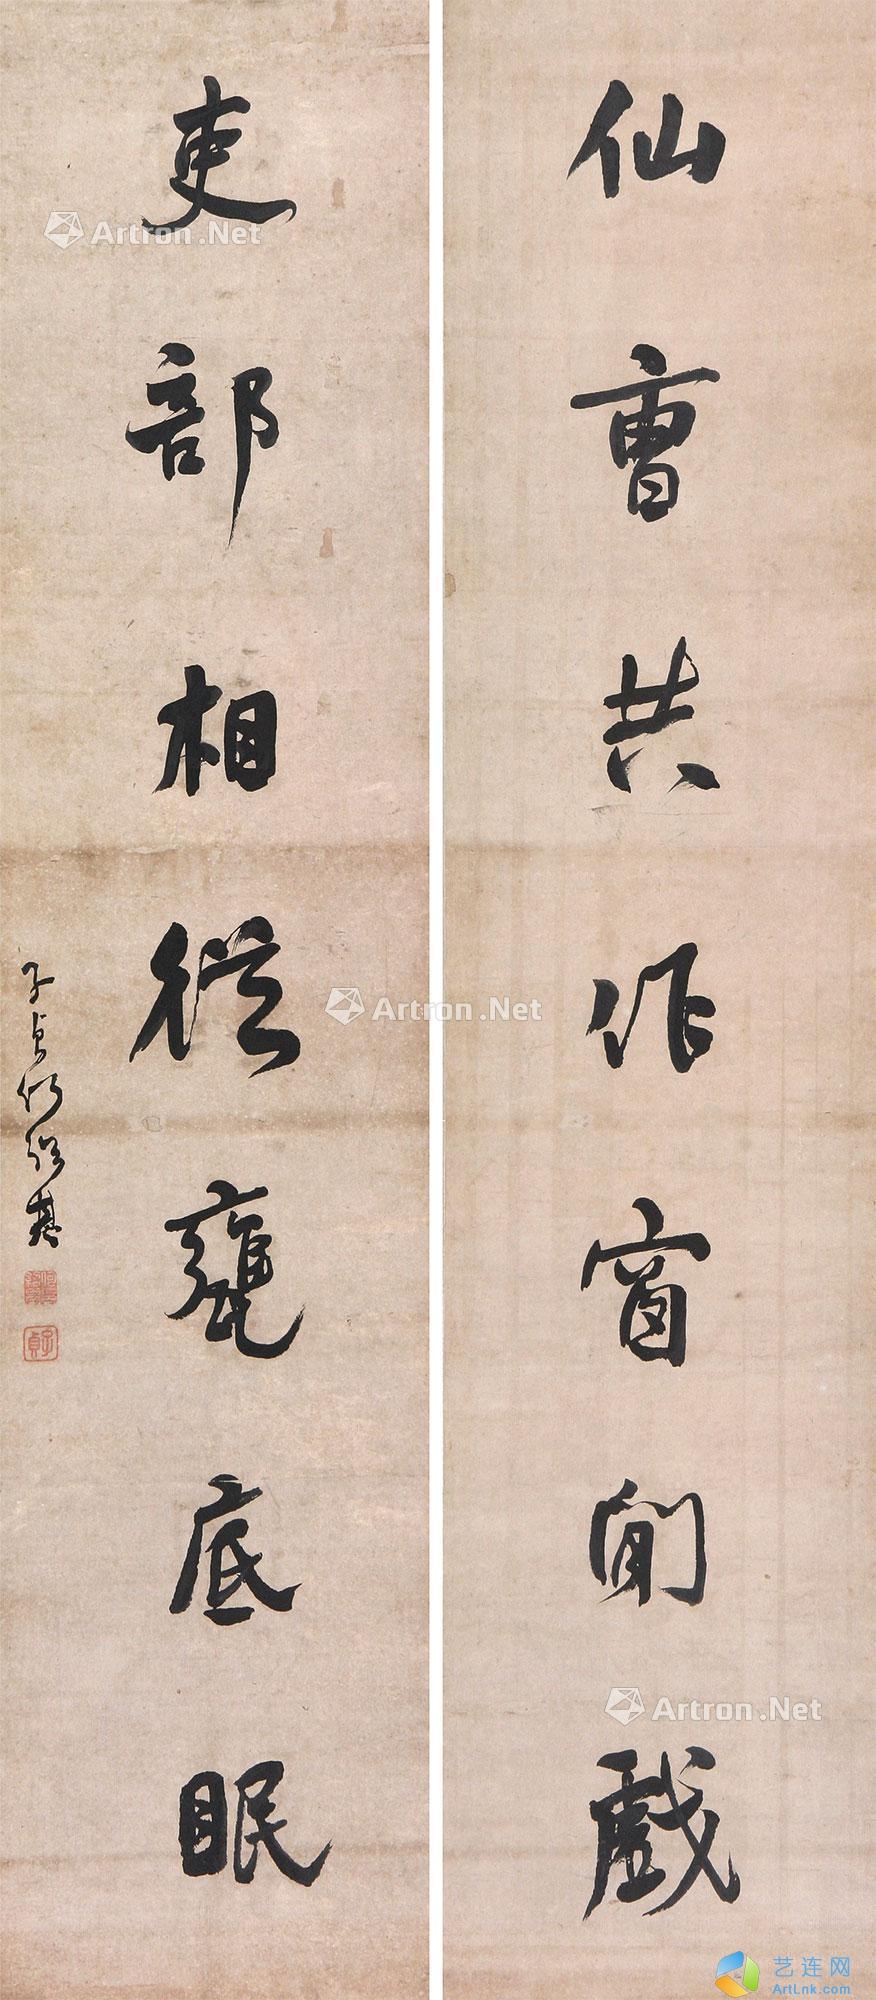 仙曹共作窗間戲
吏部相從甕底眠
子貞何紹基
子貞
Artron.Net
Artron.Net
Artron.Net
艺连网
ArtLnk.com